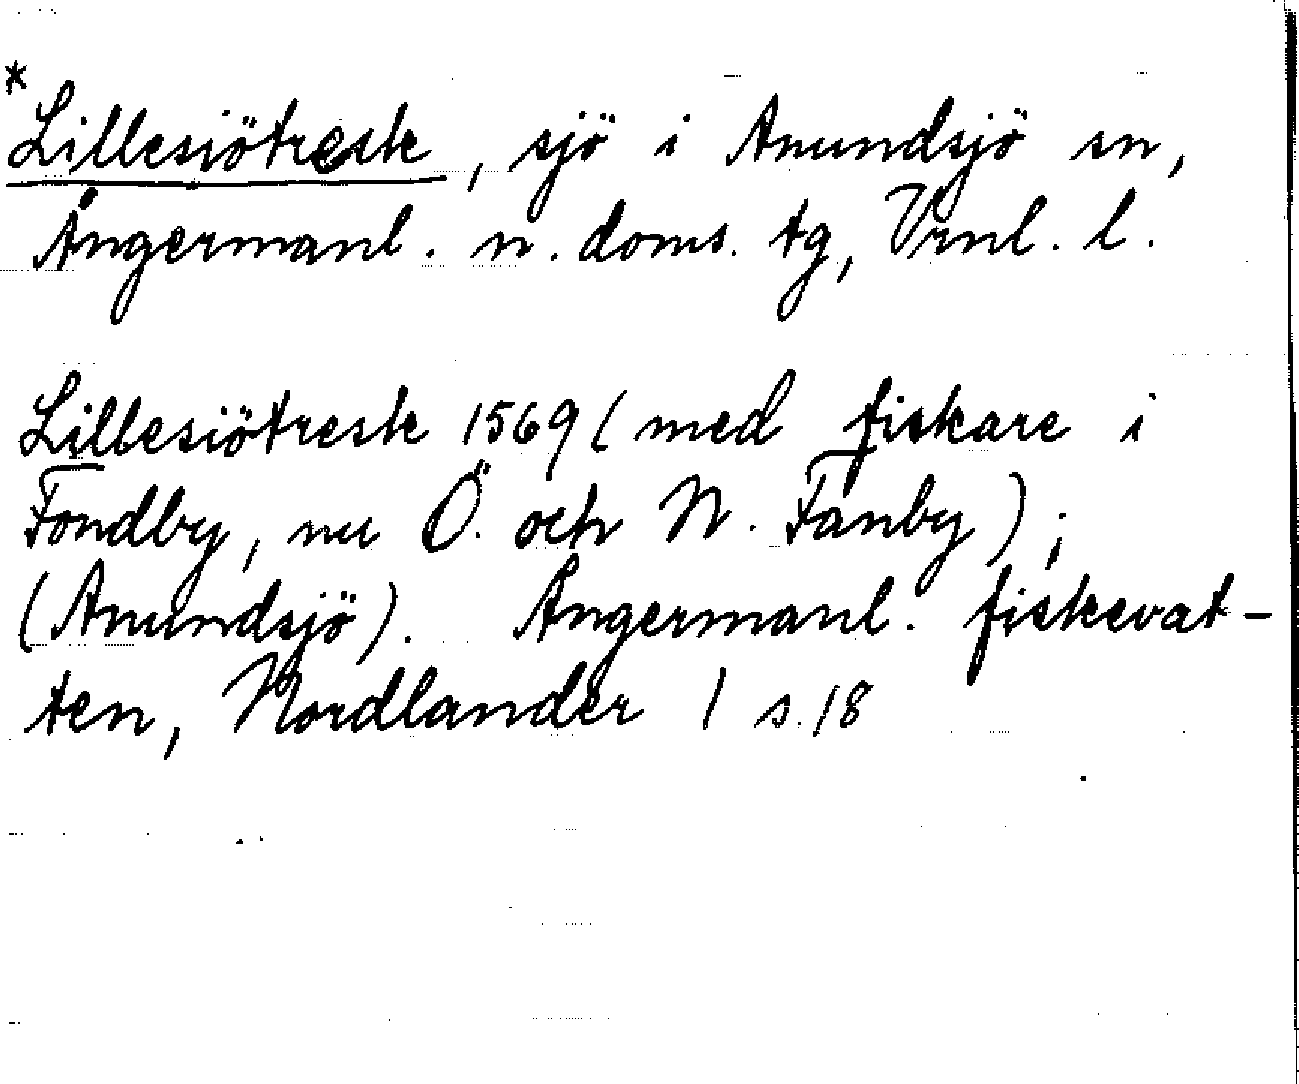 *
Lillesiötreste, sjö i Anundsjö sn,
Ångermanl. n. doms. tg, Vrnl. l.
Lillesiötresk 1569 (med fiskare i
Fondby, nu Ö. och N. Fanby);
(Anundsjö). Ångermanl. fiskevat-
ten, Nordlander 1 s. 18